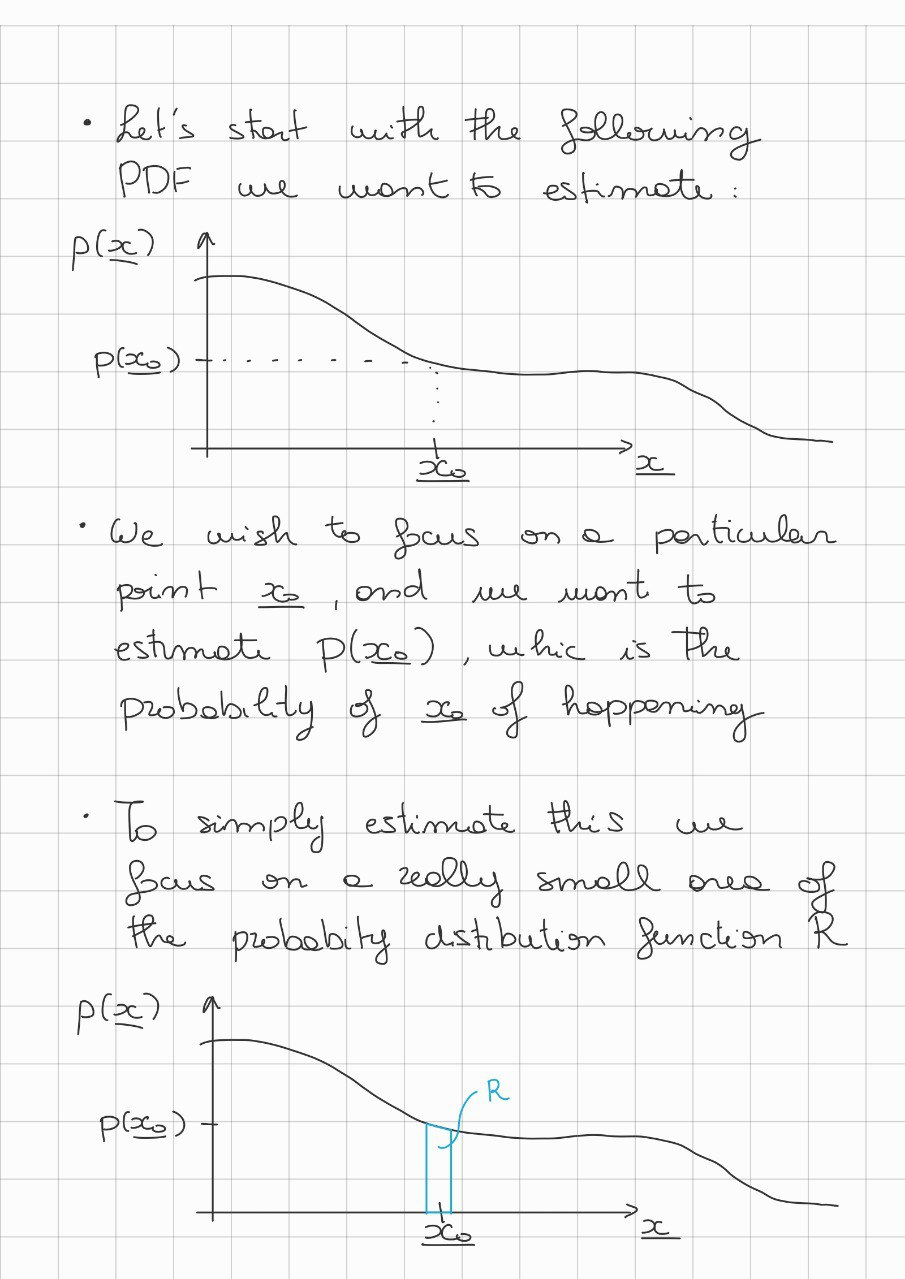 • Let's start with the following
PDF we want to estimate :
p(x)
p(x₀)
x₀
x
• We wish to focus on a particular
point x₀ , and we want to
estimate p(x₀) , whic is the
probability of x₀ of happening
• To simply estimate this we
focus on a really small area of
the probabity distibution function R
p(x)
R
p(x₀)
x₀
x